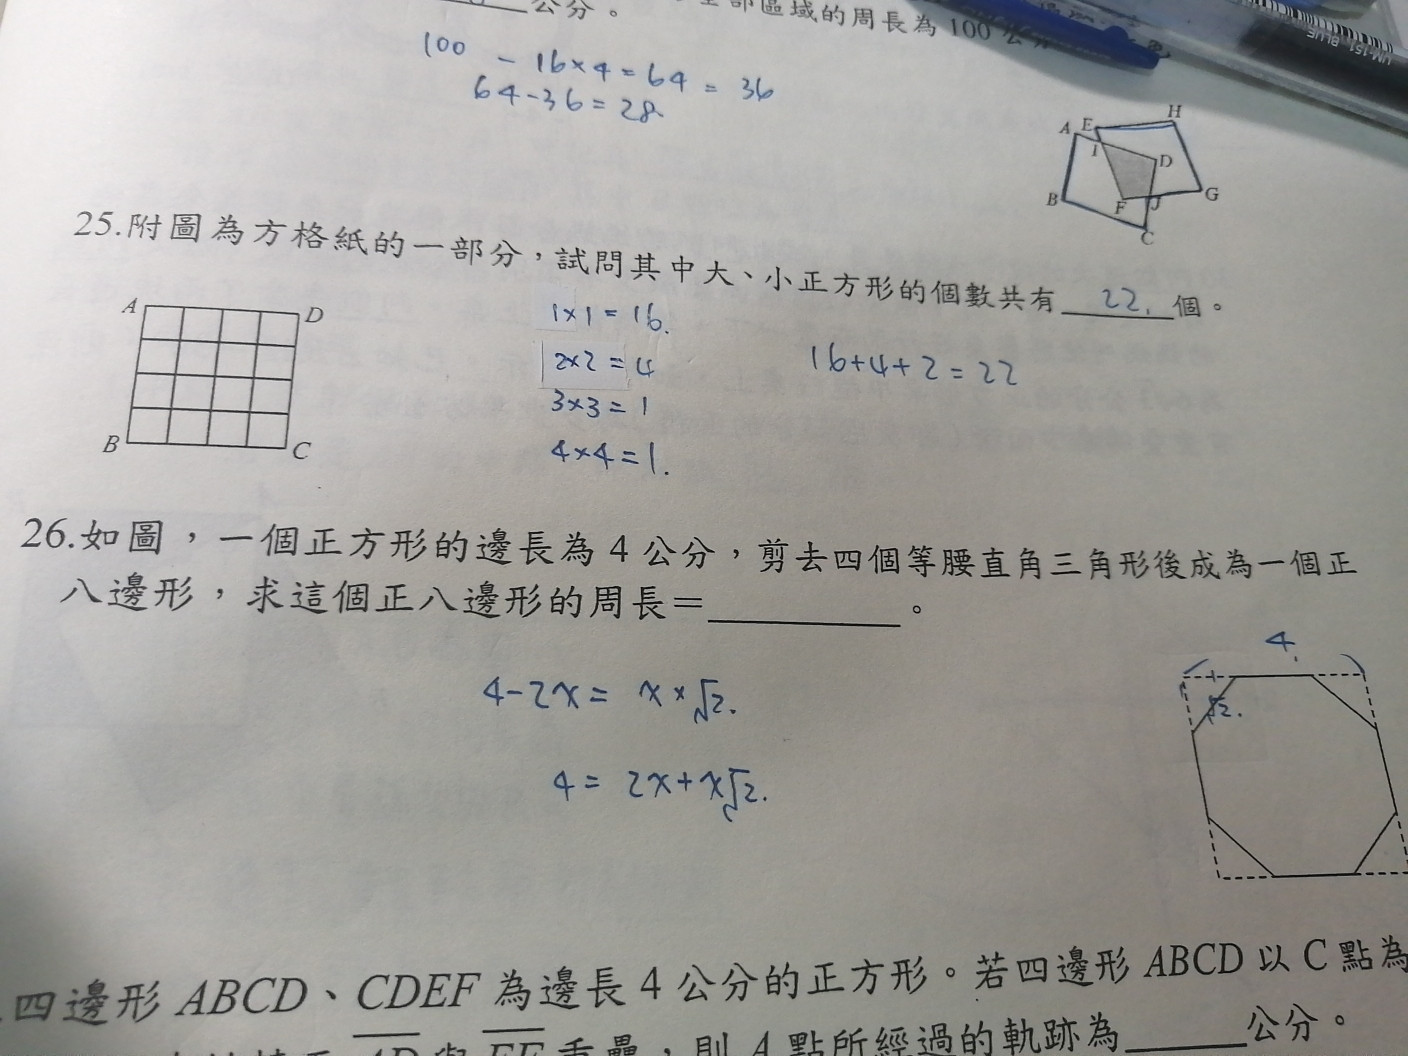 公分。
區域的周長為 100 公分
100 - 16×4 = 64 = 36
64-36 = 28
UM-151 BLUE
A E H
I D
B F J G
C
25.附圖為方格紙的一部分，試問其中大、小正方形的個數共有 22. 個。
A D
B C
1×1 = 16.
2×2 = 4
3×3 = 1
4×4 = 1.
16+4+2 = 22
26.如圖，一個正方形的邊長為 4 公分，剪去四個等腰直角三角形後成為一個正
八邊形，求這個正八邊形的周長＝______。
4-2x = x×√2.
4 = 2x+x√2.
4.
√2.
四邊形 ABCD、CDEF 為邊長 4 公分的正方形。若四邊形 ABCD 以 C 點為
AD 與 EF 重疊，則 A 點所經過的軌跡為______公分。